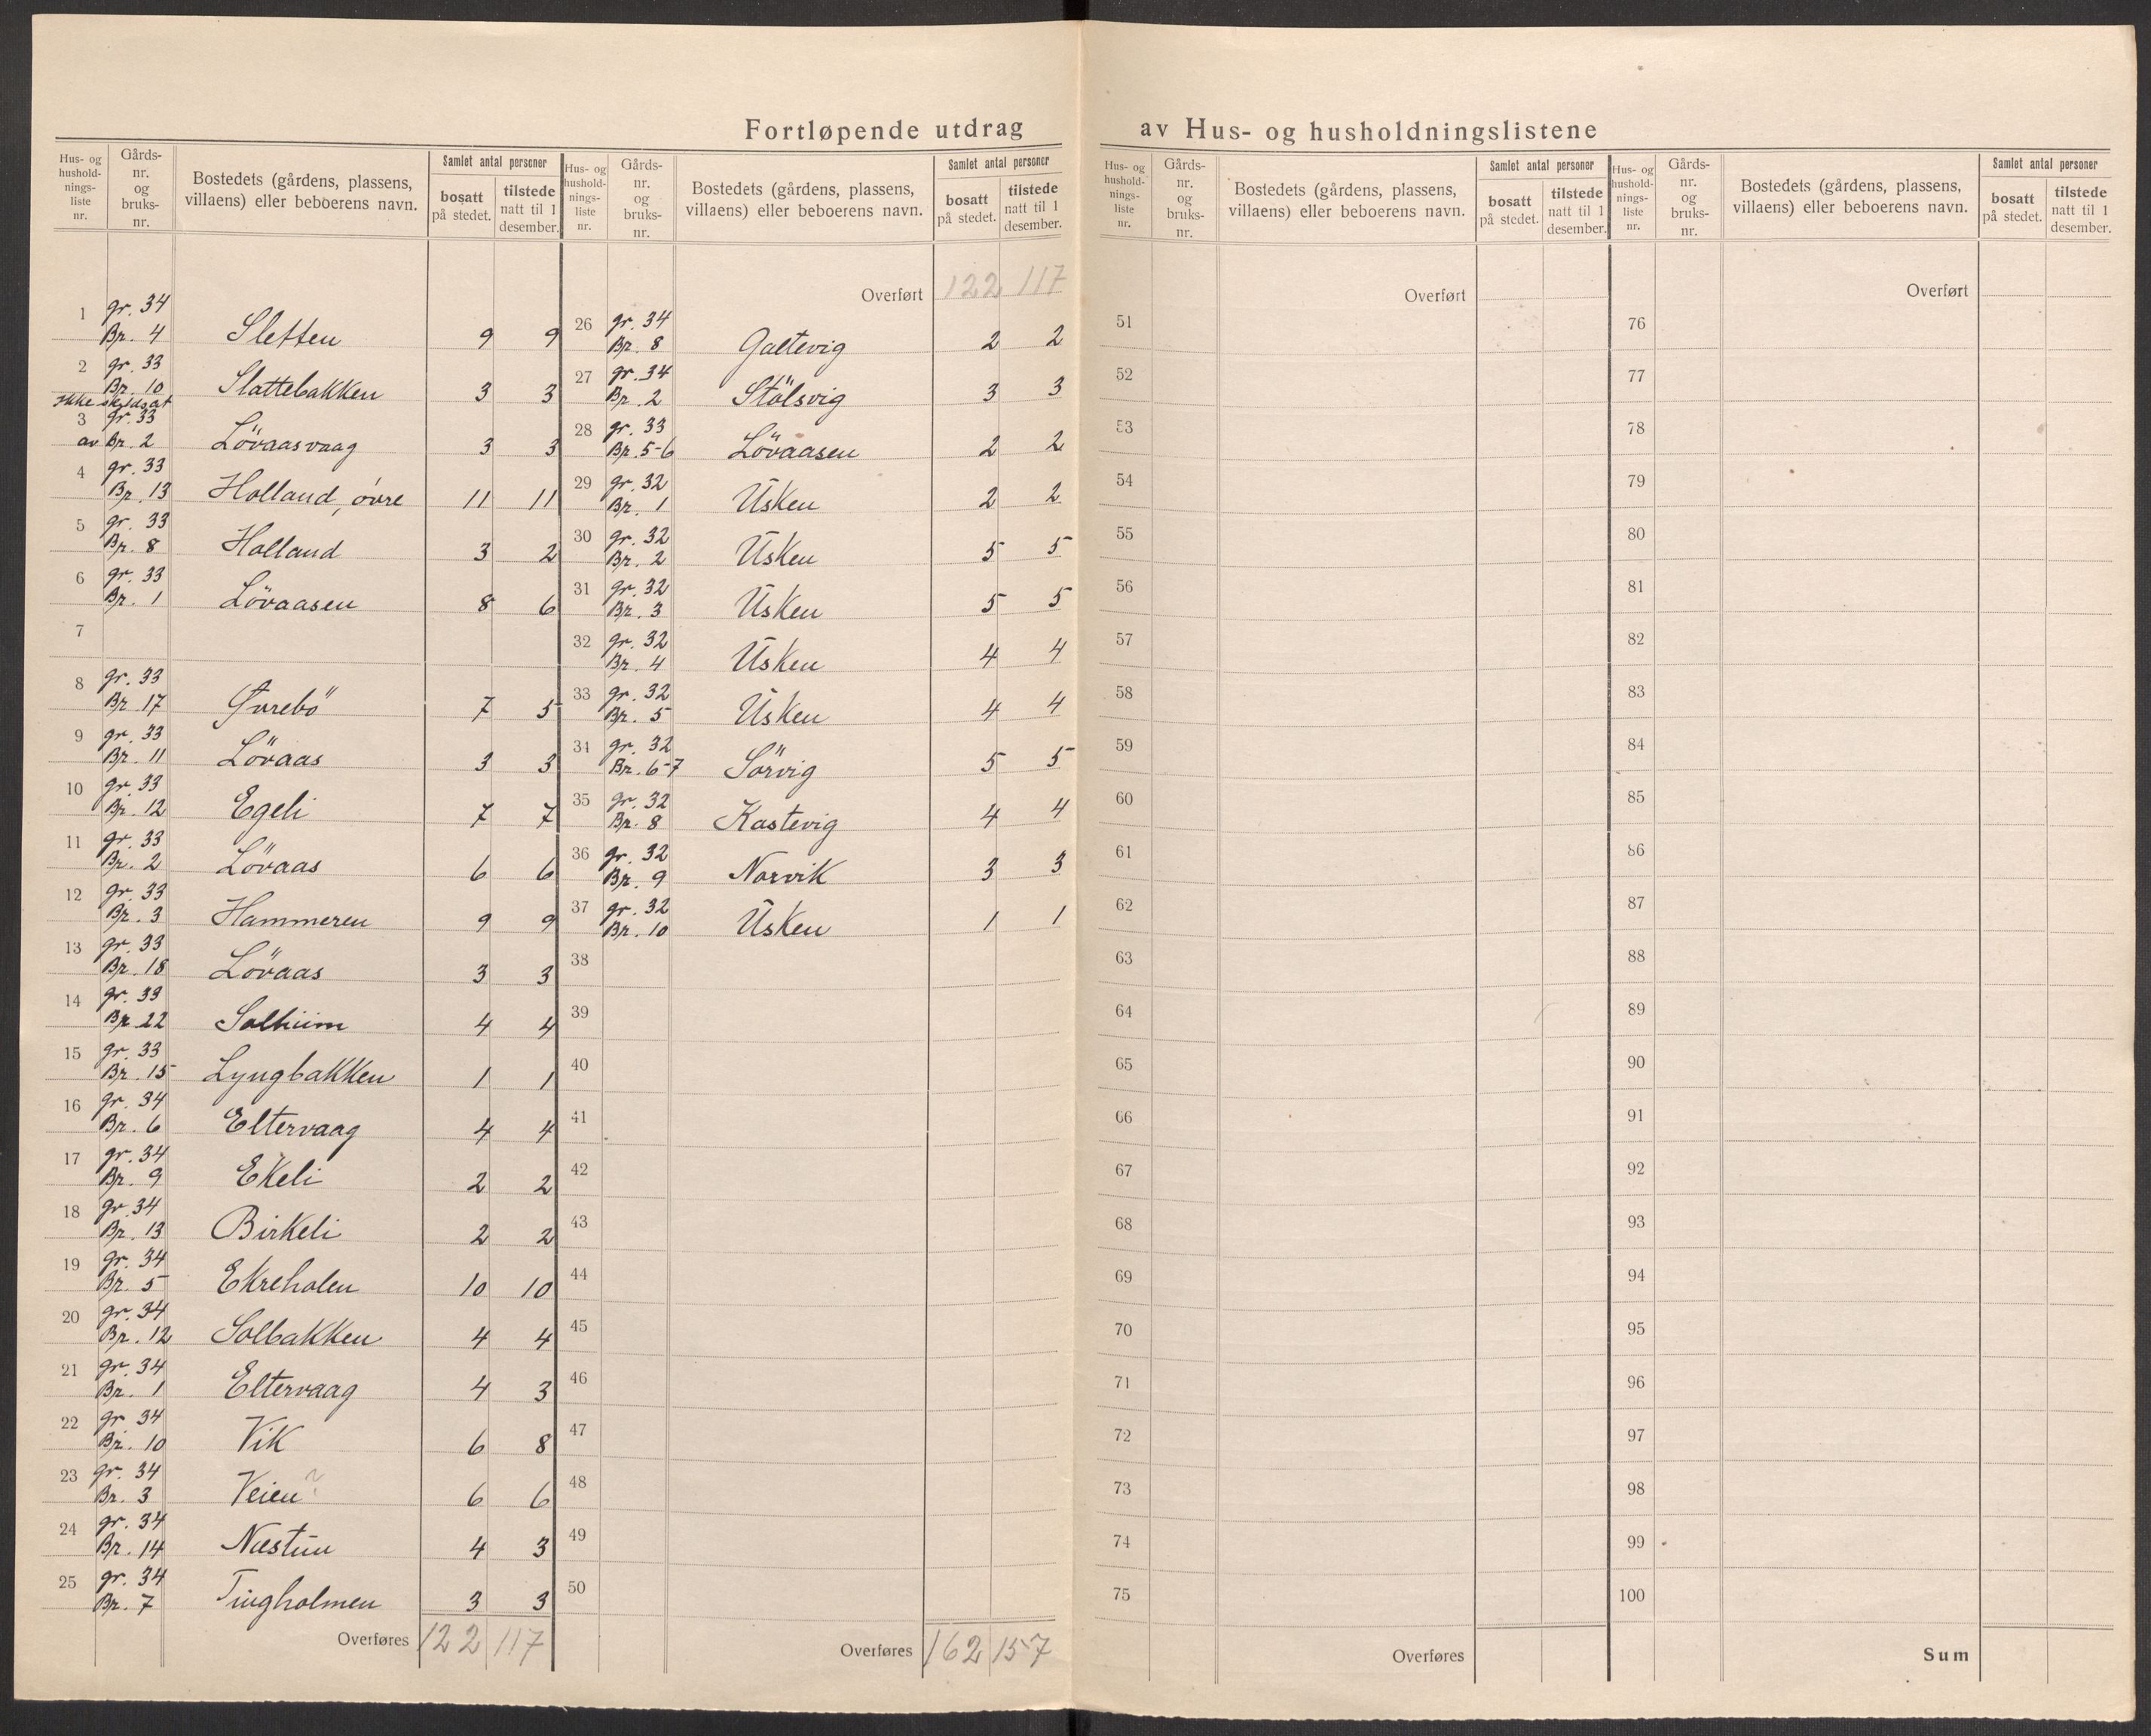 Fortløpende utdrag av Hus- og husholdningslistene
Hus- og husholdnings-liste nr. | Gårds-nr. og bruks-nr. | Bostedets (gårdens, plassens, villaens) eller beboerens navn. | Samlet antal personer | bosatt på stedet. | tilstede natt til 1 desember.
1 gr. 34 Br. 4 Sletten 9 9
2 gr. 33 Br. 10 Slattebakken 3 3
ikke skyldsat
3 gr. 33 av Br. 2 Lövaasvaag 3 3
4 gr. 33 Br. 13 Holland, övre 11 11
5 gr. 33 Br. 8 Holland 3 2
6 gr. 33 Br. 1 Lövaasen 8 6
7
8 gr. 33 Br. 17 Øvrebö 7 5
9 gr. 33 Br. 11 Lövaas 3 3
10 gr. 33 Br. 12 Egeli 7 7
11 gr. 33 Br. 2 Lövaas 6 6
12 gr. 33 Br. 3 Hammeren 9 9
13 gr. 33 Br. 18 Lövaas 3 3
14 gr. 33 Br. 22 Solheim 4 4
15 gr. 33 Br. 15 Lyngbakken 1 1
16 gr. 34 Br. 6 Eltervaag 4 4
17 gr. 34 Br. 9 Ekeli 2 2
18 gr. 34 Br. 13 Birkeli 2 2
19 gr. 34 Br. 5 Ekreholen 10 10
20 gr. 34 Br. 12 Solbakken 4 4
21 gr. 34 Br. 1 Eltervaag 4 3
22 gr. 34 Br. 10 Vik 6 8
23 gr. 34 Br. 3 Veien 6 6
24 gr. 34 Br. 14 Næstun 4 3
25 gr. 34 Br. 7 Tingholmen 3 3
Overføres 122 117
Hus- og husholdnings-liste nr. | Gårds-nr. og bruks-nr. | Bostedets (gårdens, plassens, villaens) eller beboerens navn. | Samlet antal personer | bosatt på stedet. | tilstede natt til 1 desember.
Overført 122 117
26 gr. 34 Br. 8 Galtevig 2 2
27 gr. 34 Br. 2 Stölsvig 3 3
28 gr. 33 Br. 5-6 Lövaasen 2 2
29 gr. 32 Br. 1 Usken 2 2
30 gr. 32 Br. 2 Usken 5 5
31 gr. 32 Br. 3 Usken 5 5
32 gr. 32 Br. 4 Usken 4 4
33 gr. 32 Br. 5 Usken 4 4
34 gr. 32 Br. 6-7 Sörvig 5 5
35 gr. 32 Br. 8 Kastevig 4 4
36 gr. 32 Br. 9 Norvik 3 3
37 gr. 32 Br. 10 Usken 1 1
38
39
40
41
42
43
44
45
46
47
48
49
50
Overføres 162 157
Hus- og husholdnings-liste nr. | Gårds-nr. og bruks-nr. | Bostedets (gårdens, plassens, villaens) eller beboerens navn. | Samlet antal personer | bosatt på stedet. | tilstede natt til 1 desember.
Overført
51
52
53
54
55
56
57
58
59
60
61
62
63
64
65
66
67
68
69
70
71
72
73
74
75
Overføres
Hus- og husholdnings-liste nr. | Gårds-nr. og bruks-nr. | Bostedets (gårdens, plassens, villaens) eller beboerens navn. | Samlet antal personer | bosatt på stedet. | tilstede natt til 1 desember.
Overført
76
77
78
79
80
81
82
83
84
85
86
87
88
89
90
91
92
93
94
95
96
97
98
99
100
Sum